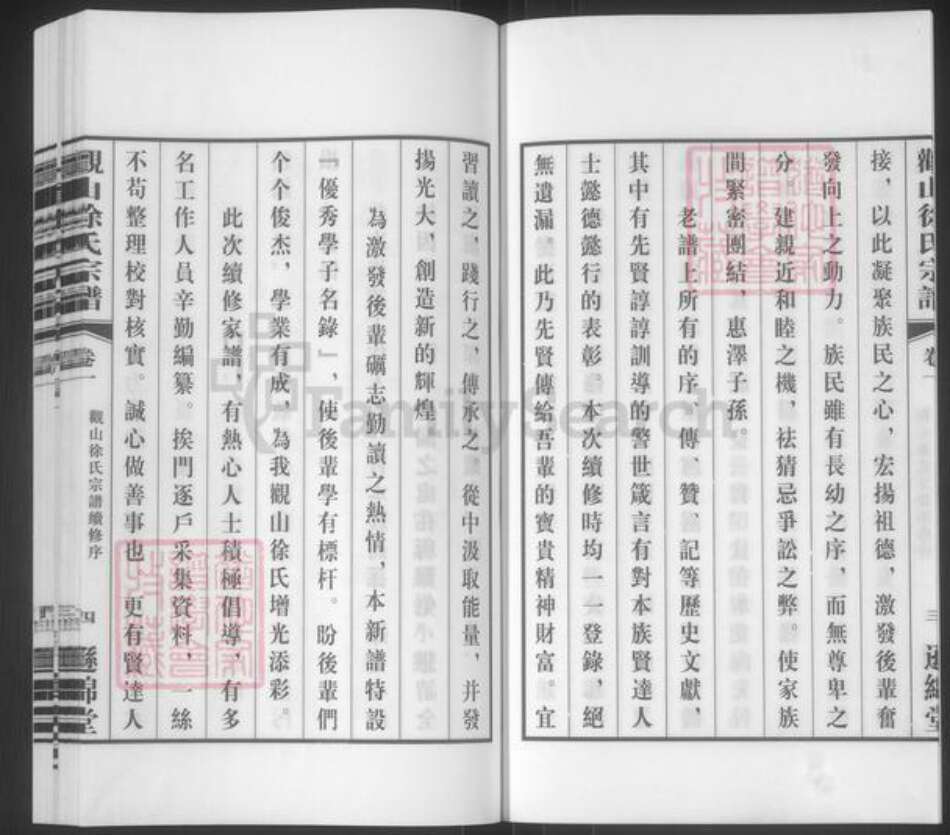 觀山徐氏宗譜
卷一
三
接，以此凝聚族民之心，宏揚祖德，激發後輩奮
發向上之動力。族民雖有長幼之序，而無尊卑之
分。建親近和睦之機，祛猜忌爭訟之弊。使家族
間緊密團結，惠澤子孫。
老譜上所有的序、傳、贊、記等歷史文獻，
其中有先賢諄諄訓導的警世箴言有對本族賢達人
士懿德懿行的表彰。本次續修時均一一登錄，絕
無遺漏。此乃先賢傳給吾輩的寶貴精神財富。宜
習讀之，踐行之，傳承之，從中汲取能量，并發
揚光大，創造新的輝煌。
為激發後輩礪志勤讀之熱情，本新譜特設
「優秀學子名錄」，使後輩學有標杆。盼後輩們
个个俊杰，學業有成，為我觀山徐氏增光添彩。
此次續修家譜，有熱心人士積極倡導，有多
名工作人員辛勤編纂。挨門逐戶采集資料，一絲
不苟整理校對核實。誠心做善事也。更有賢達人
觀山徐氏宗譜續修序
觀山徐氏宗譜
卷一
四
遜錦堂
FamilySearch